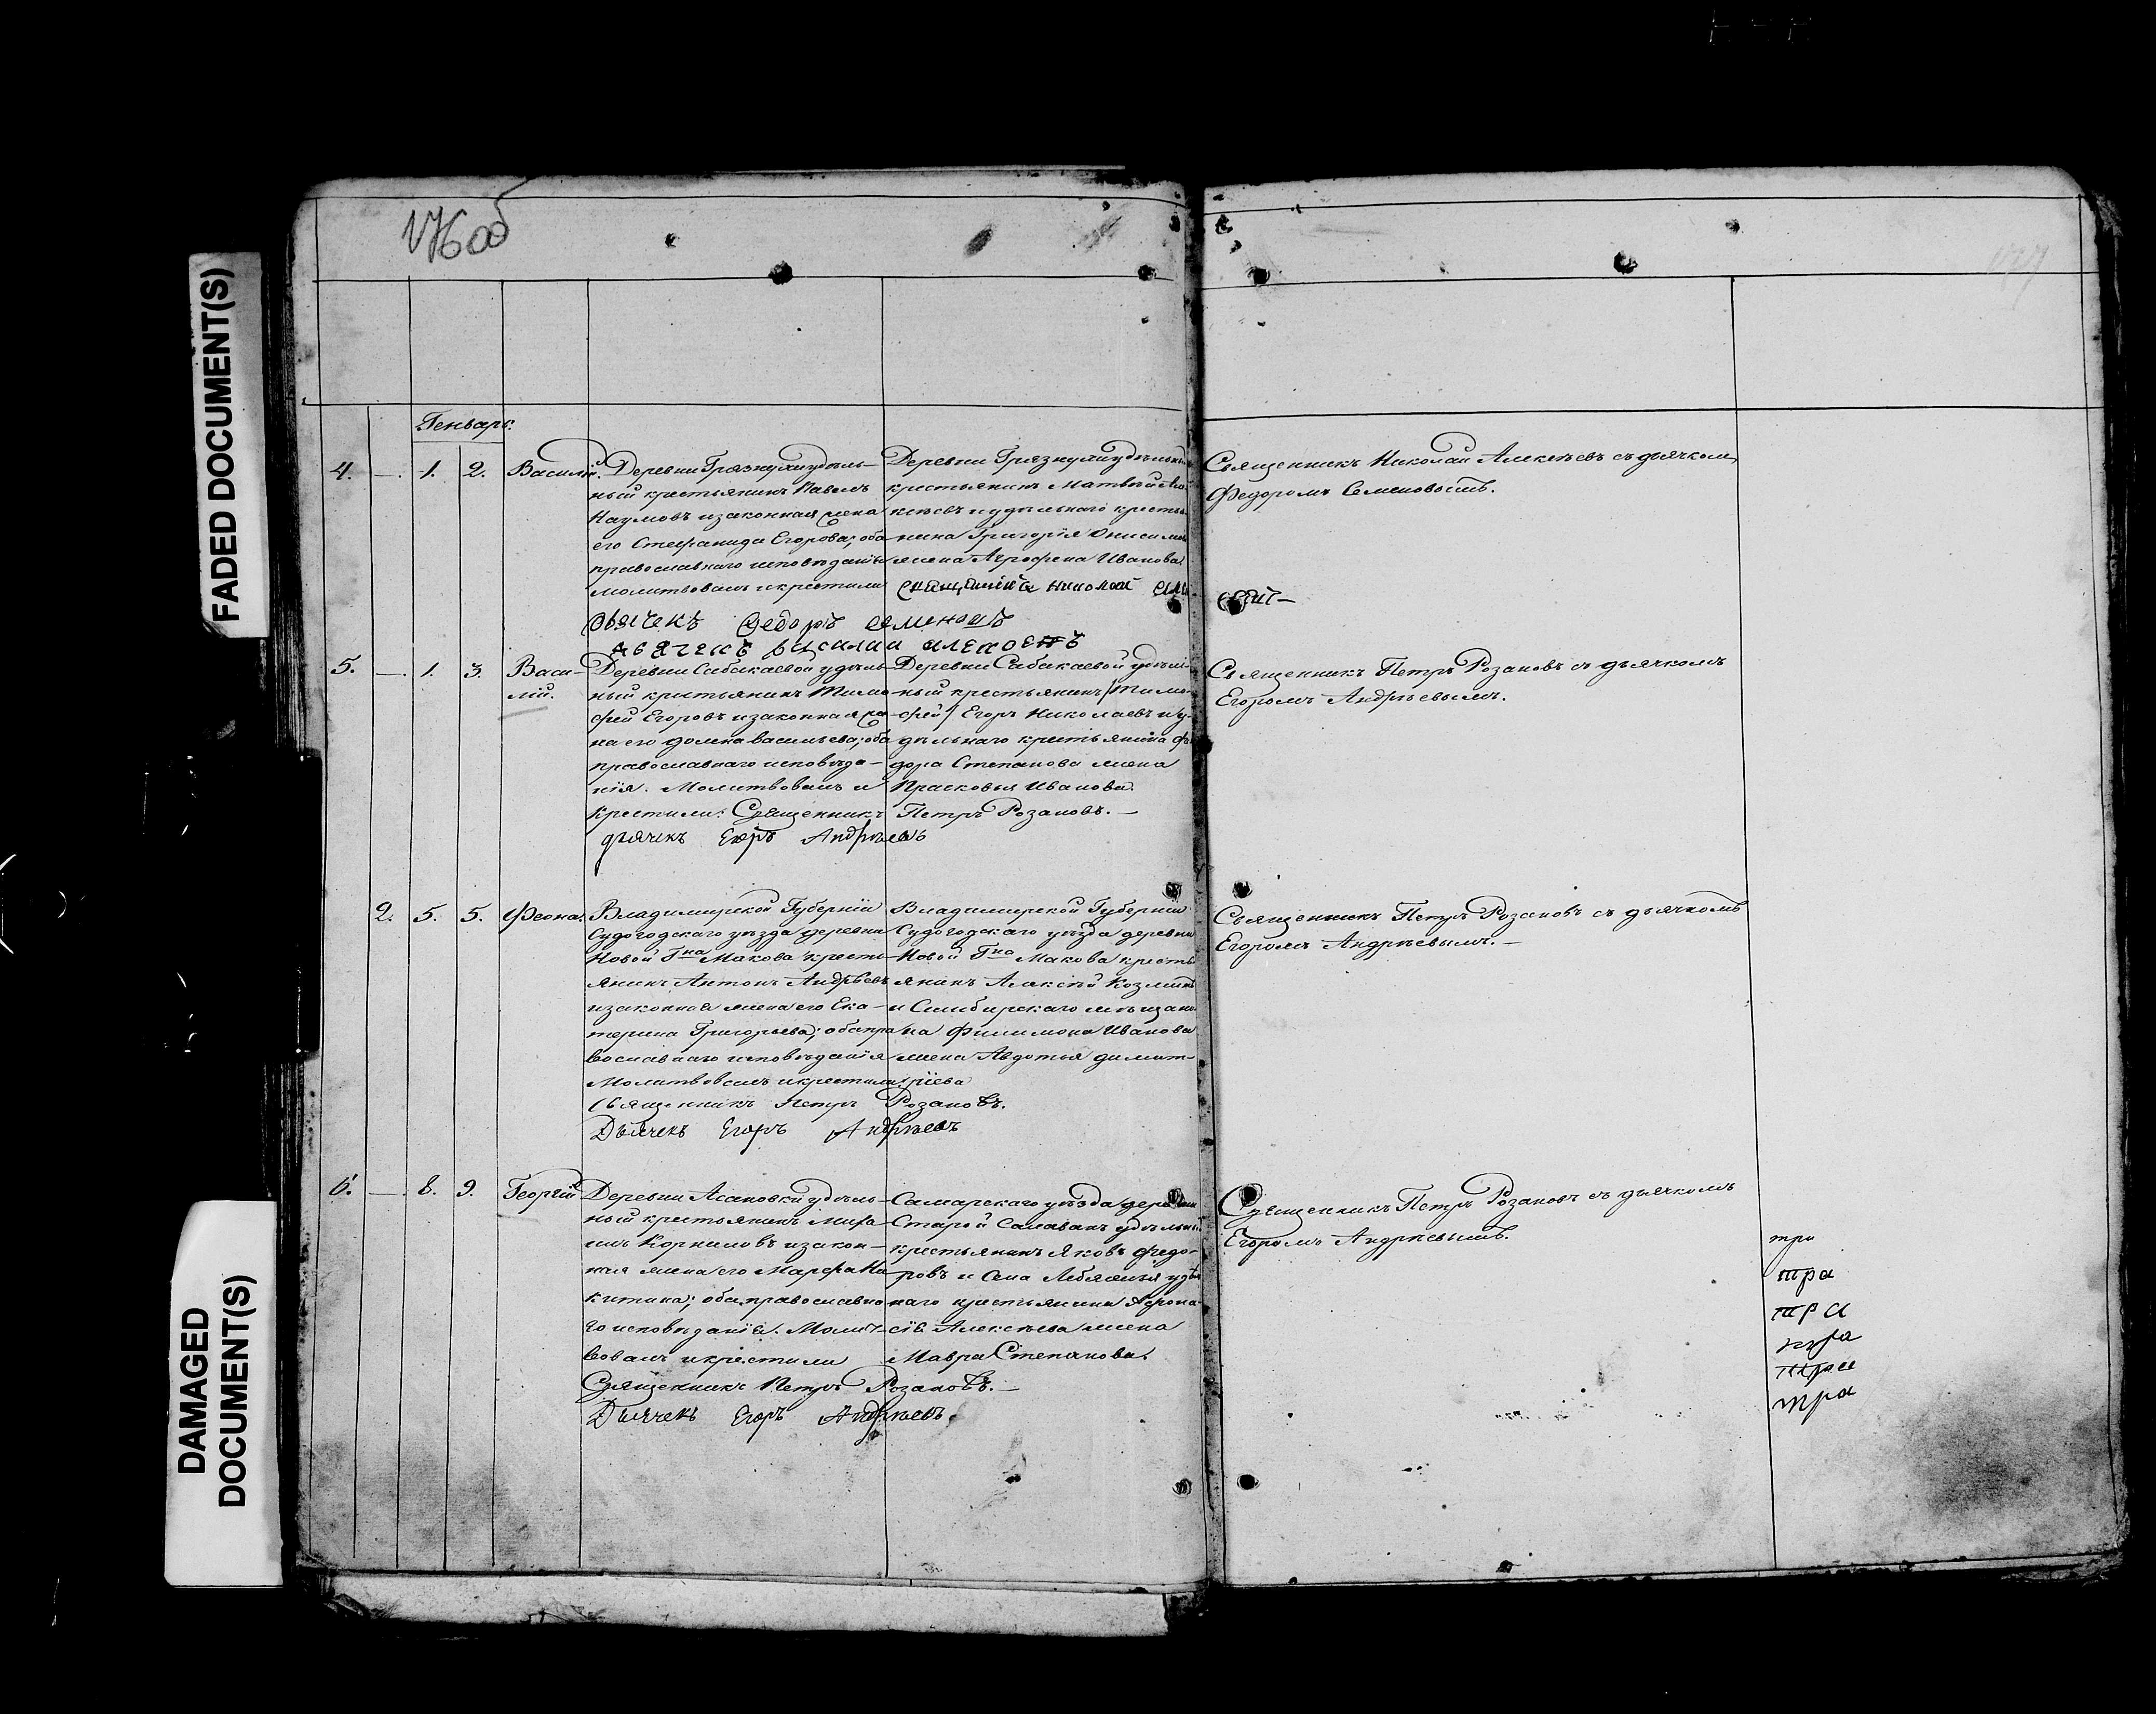 FADED DOCUMENT(S)
DAMAGED
DOCUMENT(S)
176 об
177
Генварь.
4. — 1. 2. Василій.
Деревни Грязнухи удѣль-
ный крестьянинъ Павелъ
Наумовъ и законная жена
его Стефанида Егорова; оба
православнаго исповѣданія
молитвовалъ и крестили
Деревни Грязнухи удѣльный
крестьянинъ Матвѣй
и удѣльнаго кресть-
янина Григорія
жена Агрофена Иванова
Священникъ Николай
Дьячекъ Федоръ Семеновъ
Василий
Священникъ Николай Алексѣевъ съ дьячкомъ
Федоромъ Семеновымъ.
5. — 1. 3. Васи-
лій.
Деревни Сабакаевой удѣль-
ный крестьянинъ Тимо-
фей Егоровъ и законная же-
на его Домна Васильева; оба
православнаго исповѣда-
нія. Молитвовалъ и
крестили: Священникъ Петръ Розановъ. —
дьячекъ Егоръ Андрѣевъ
Деревни Сабакаевой удѣль-
ный крестьянинъ /Тимо-
фей/ Егоръ Николаевъ и у-
дѣльнаго крестьянина Фе-
дора Степанова жена
Прасковья Иванова.
Священникъ Петръ Розановъ съ дьячкомъ
Егоромъ Андрѣевымъ.
2. 5. 5. Феона.
Владимирской Губерніи
Судогодскаго уѣзда деревни
Новой Гна Макова кресть-
янинъ Антонъ Андрѣевъ
и законная жена его Ека-
терина Григорьева; оба пра-
вославнаго исповѣданія
Молитвовалъ и крестили
Священникъ Петръ Розановъ.
Дьячекъ Егоръ Андрѣевъ
Владимирской Губерніи
Судогодскаго уѣзда деревни
Новой Гна Макова кресть-
янинъ Алексѣй Козминъ
и Симбирскаго мѣщани-
на Филимона Иванова
жена Авдотья Димит-
ріева
Священникъ Петръ Розановъ съ дьячкомъ
Егоромъ Андрѣевымъ. —
6. — 8. 9. Георгій
Деревни Асановки удѣль-
ный крестьянинъ Миха-
илъ Корниловъ и закон-
ная жена его Марфа Ни-
китина; оба православна-
го исповѣданія. Молит-
вовалъ и крестили
Священникъ Петръ Розановъ. —
Дьячекъ Егоръ Андрѣевъ.
Самарскаго уѣзда деревни
Старой Салаванъ удѣльный
крестьянинъ Яковъ Федо-
ровъ и села Лебяжья удѣль-
наго крестьянина Афона-
сія Алексѣева жена
Мавра Степанова.
Священникъ Петръ Розановъ съ дьячкомъ
Егоромъ Андрѣевымъ.
три
тра
тра
тра